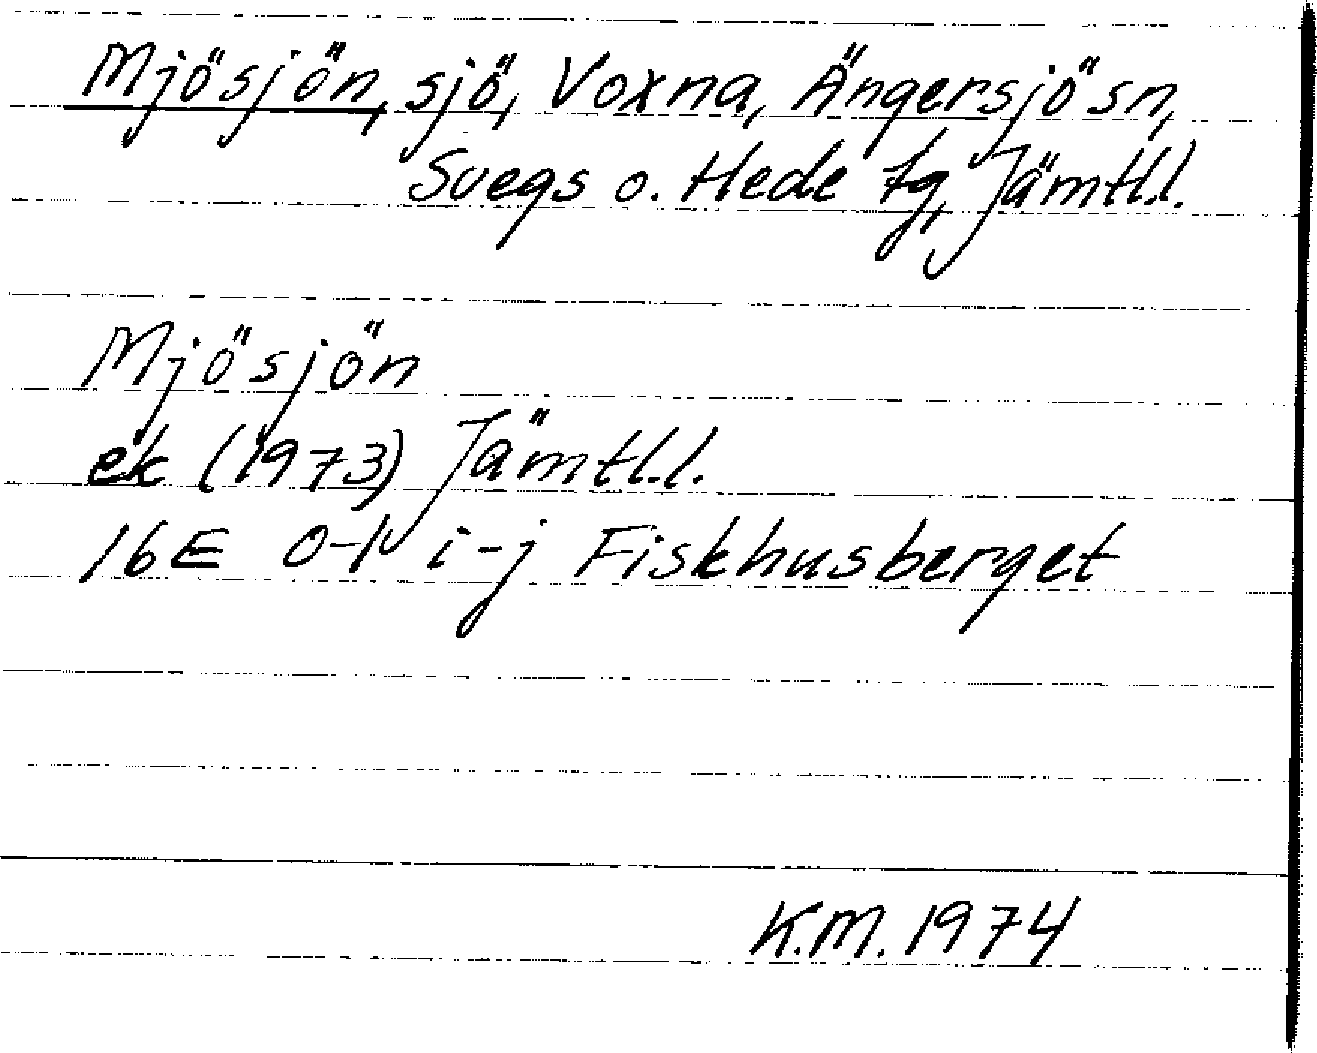 Mjösjön, sjö, Voxna, Ängersjösn,
Svegs o. Hede tg, Jämtl.l.
Mjösjön
ek (1973) Jämtl.l.
16E 0-1 i-j Fiskhusberget
K.M. 1974